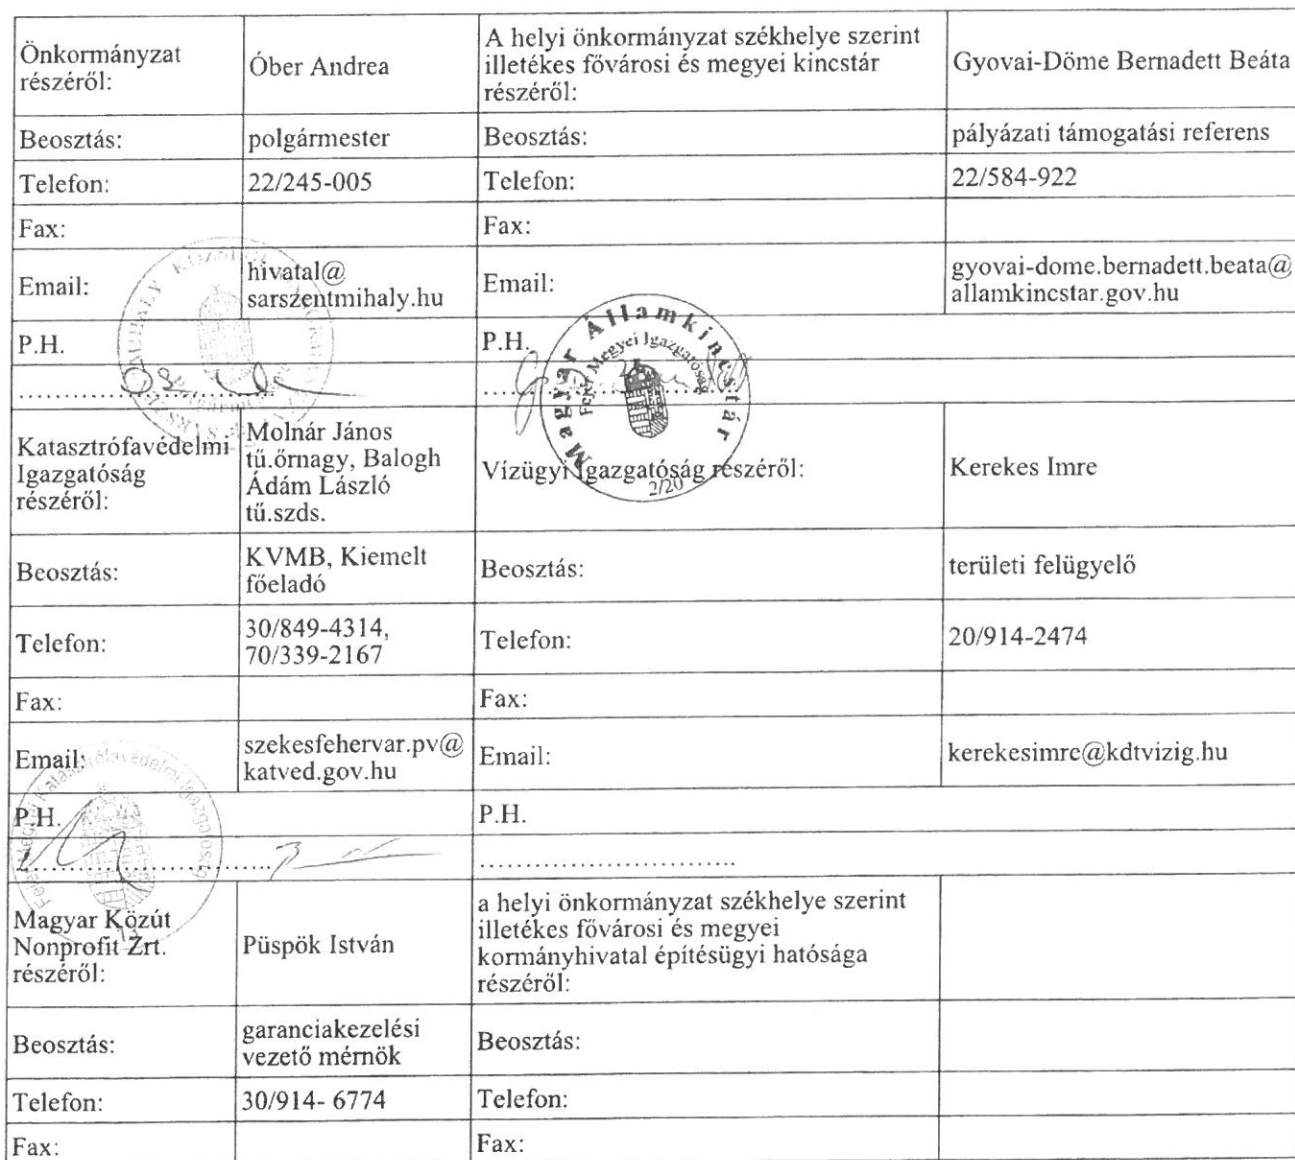 Önkormányzat
részéről:
Óber Andrea
A helyi önkormányzat székhelye szerint
illetékes fővárosi és megyei kincstár
részéről:
Gyovai-Döme Bernadett Beáta
Beosztás:
polgármester
Beosztás:
pályázati támogatási referens
Telefon:
22/245-005
Telefon:
22/584-922
Fax:
Fax:
Email:
hivatal@
sarszentmihaly.hu
Email:
gyovai-dome.bernadett.beata@
allamkincstar.gov.hu
P.H.
P.H.
Magyar Államkincstár
Fejér Megyei Igazgatóság
2/20
Katasztrófavédelmi
Igazgatóság
részéről:
Molnár János
tű.őrnagy, Balogh
Ádám László
tű.szds.
Vízügyi Igazgatóság részéről:
Kerekes Imre
Beosztás:
KVMB, Kiemelt
főeladó
Beosztás:
területi felügyelő
Telefon:
30/849-4314,
70/339-2167
Telefon:
20/914-2474
Fax:
Fax:
Email:
szekesfehervar.pv@
katved.gov.hu
Email:
kerekesimre@kdtvizig.hu
P.H.
P.H.
Fejér Megyei Katasztrófavédelmi Igazgatóság
Magyar Közút
Nonprofit Zrt.
részéről:
Püspök István
a helyi önkormányzat székhelye szerint
illetékes fővárosi és megyei
kormányhivatal építésügyi hatósága
részéről:
Beosztás:
garanciakezelési
vezető mérnök
Beosztás:
Telefon:
30/914- 6774
Telefon:
Fax:
Fax: